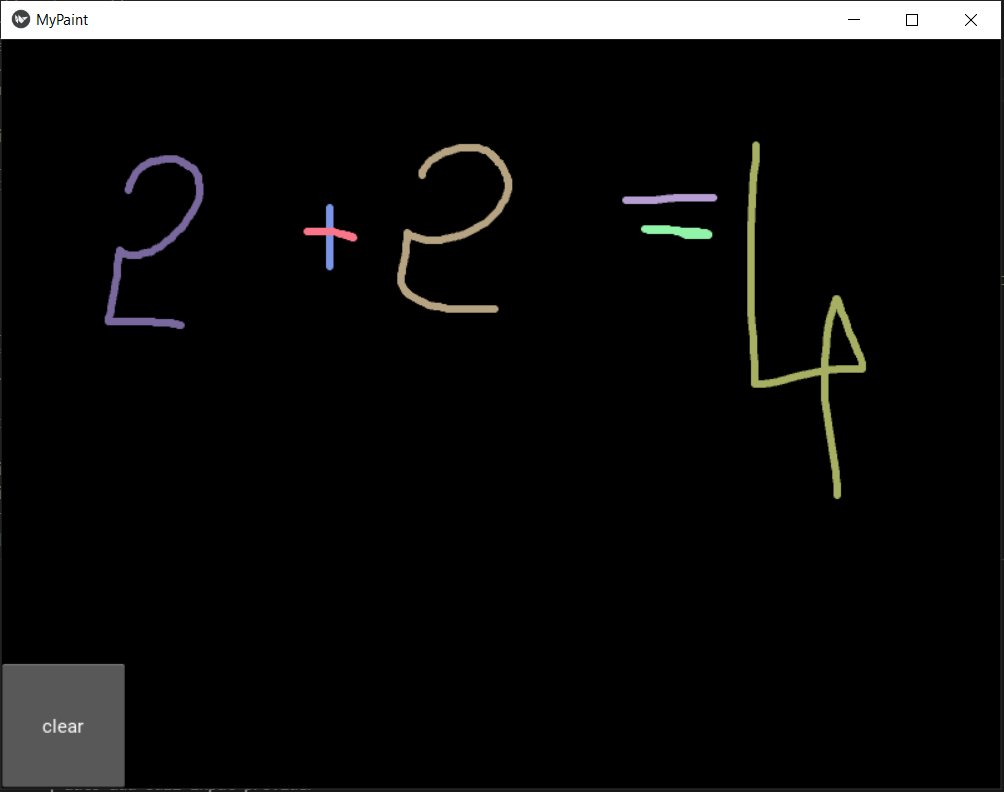 MyPaint
2 + 2 = 4
clear